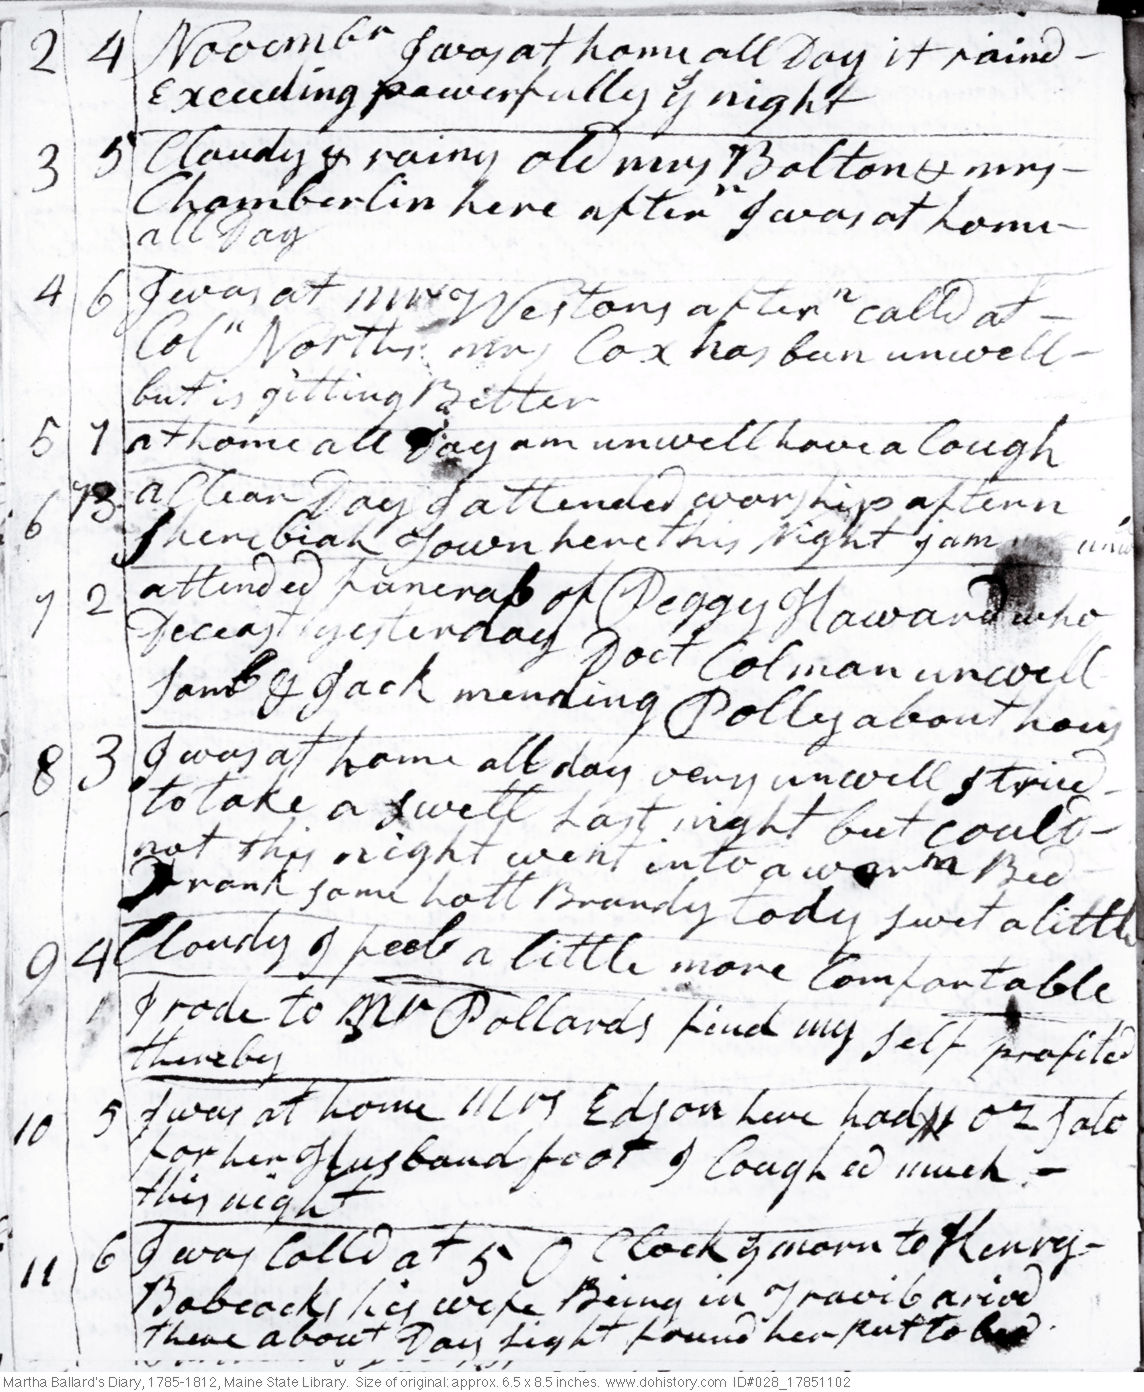 2 4 Novembr I was at home all Day it raind -
Exceeding powerfully ye night
3 5 Cloudy & rainy old mrs Bolton & mrs -
Chamberlin here aftern I was at home -
all Day
4 6 I was at mr Westons aftern calld at -
Coln Norths mrs Cox has been unwell -
but is gitting Better
5 7 at home all Day am unwell have a Cough
6 B a Clear Day I attended worship aftern
Sherebiah Town here this Night I am
7 2 attended funeral of Peggy Howard who
Deceast yesterday Doct Colman unwell
Saml & Jack mending Polly about hous
8 3 I was at home all day very unwell I tried -
to take a swett Last night but could -
not this night went into a warm Bed -
Drank some hott Brandy tody swet a little
9 4 Cloudy I feel a little more Comfortable
I rode to Mr Pollards find my self profited
thereby
10 5 I was at home Mrs Edson here had oz Salv
for her Husband foot I Coughed much -
this night
11 6 I was Calld at 5 O Clock ye morn to Henry -
Babcocks his wife Being in Travil arivd
there about Day light found her put to bed.
Martha Ballard's Diary, 1785-1812, Maine State Library. Size of original: approx. 6.5 x 8.5 inches. www.dohistory.com ID#028_17851102